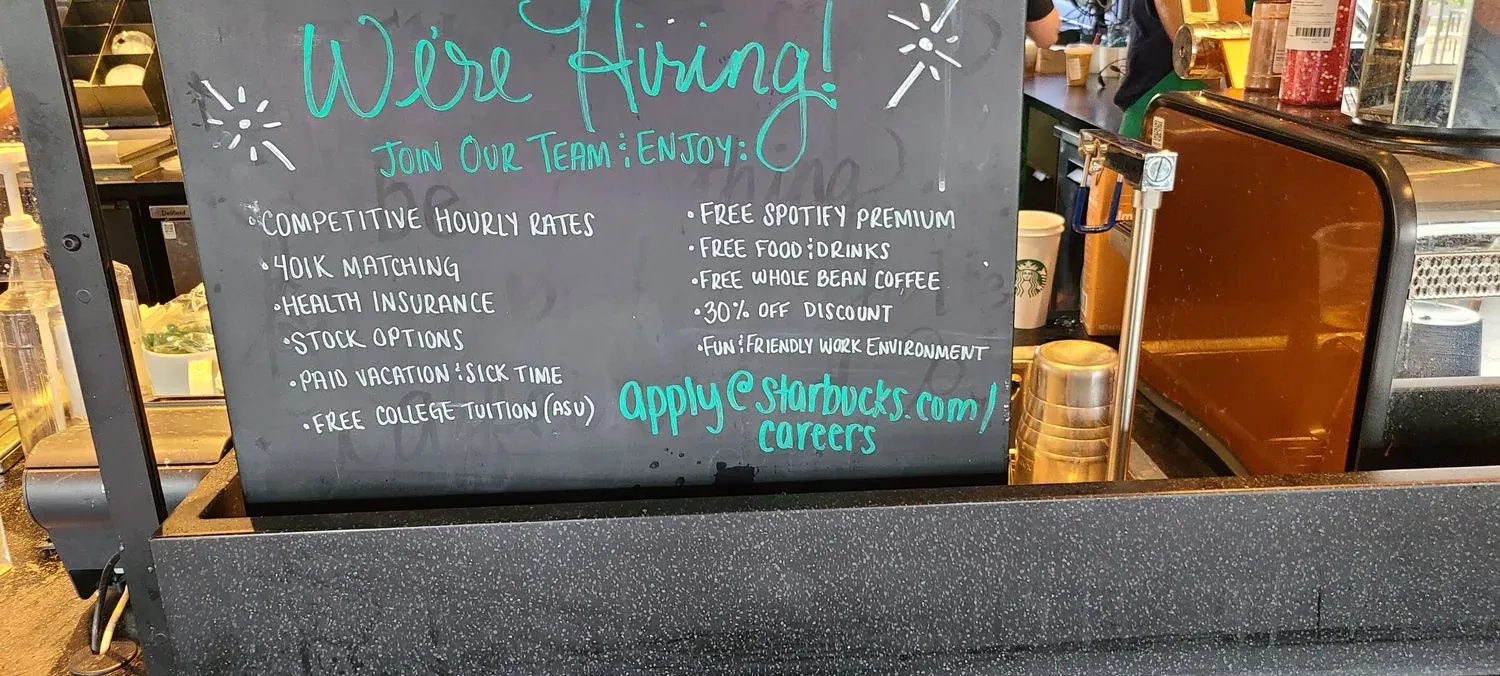 We're Hiring!
JOIN OUR TEAM & ENJOY:
• COMPETITIVE HOURLY RATES
• 401K MATCHING
• HEALTH INSURANCE
• STOCK OPTIONS
• PAID VACATION & SICK TIME
• FREE COLLEGE TUITION (ASU)
• FREE SPOTIFY PREMIUM
• FREE FOOD & DRINKS
• FREE WHOLE BEAN COFFEE
• 30% OFF DISCOUNT
• FUN & FRIENDLY WORK ENVIRONMENT
apply@starbucks.com/
careers